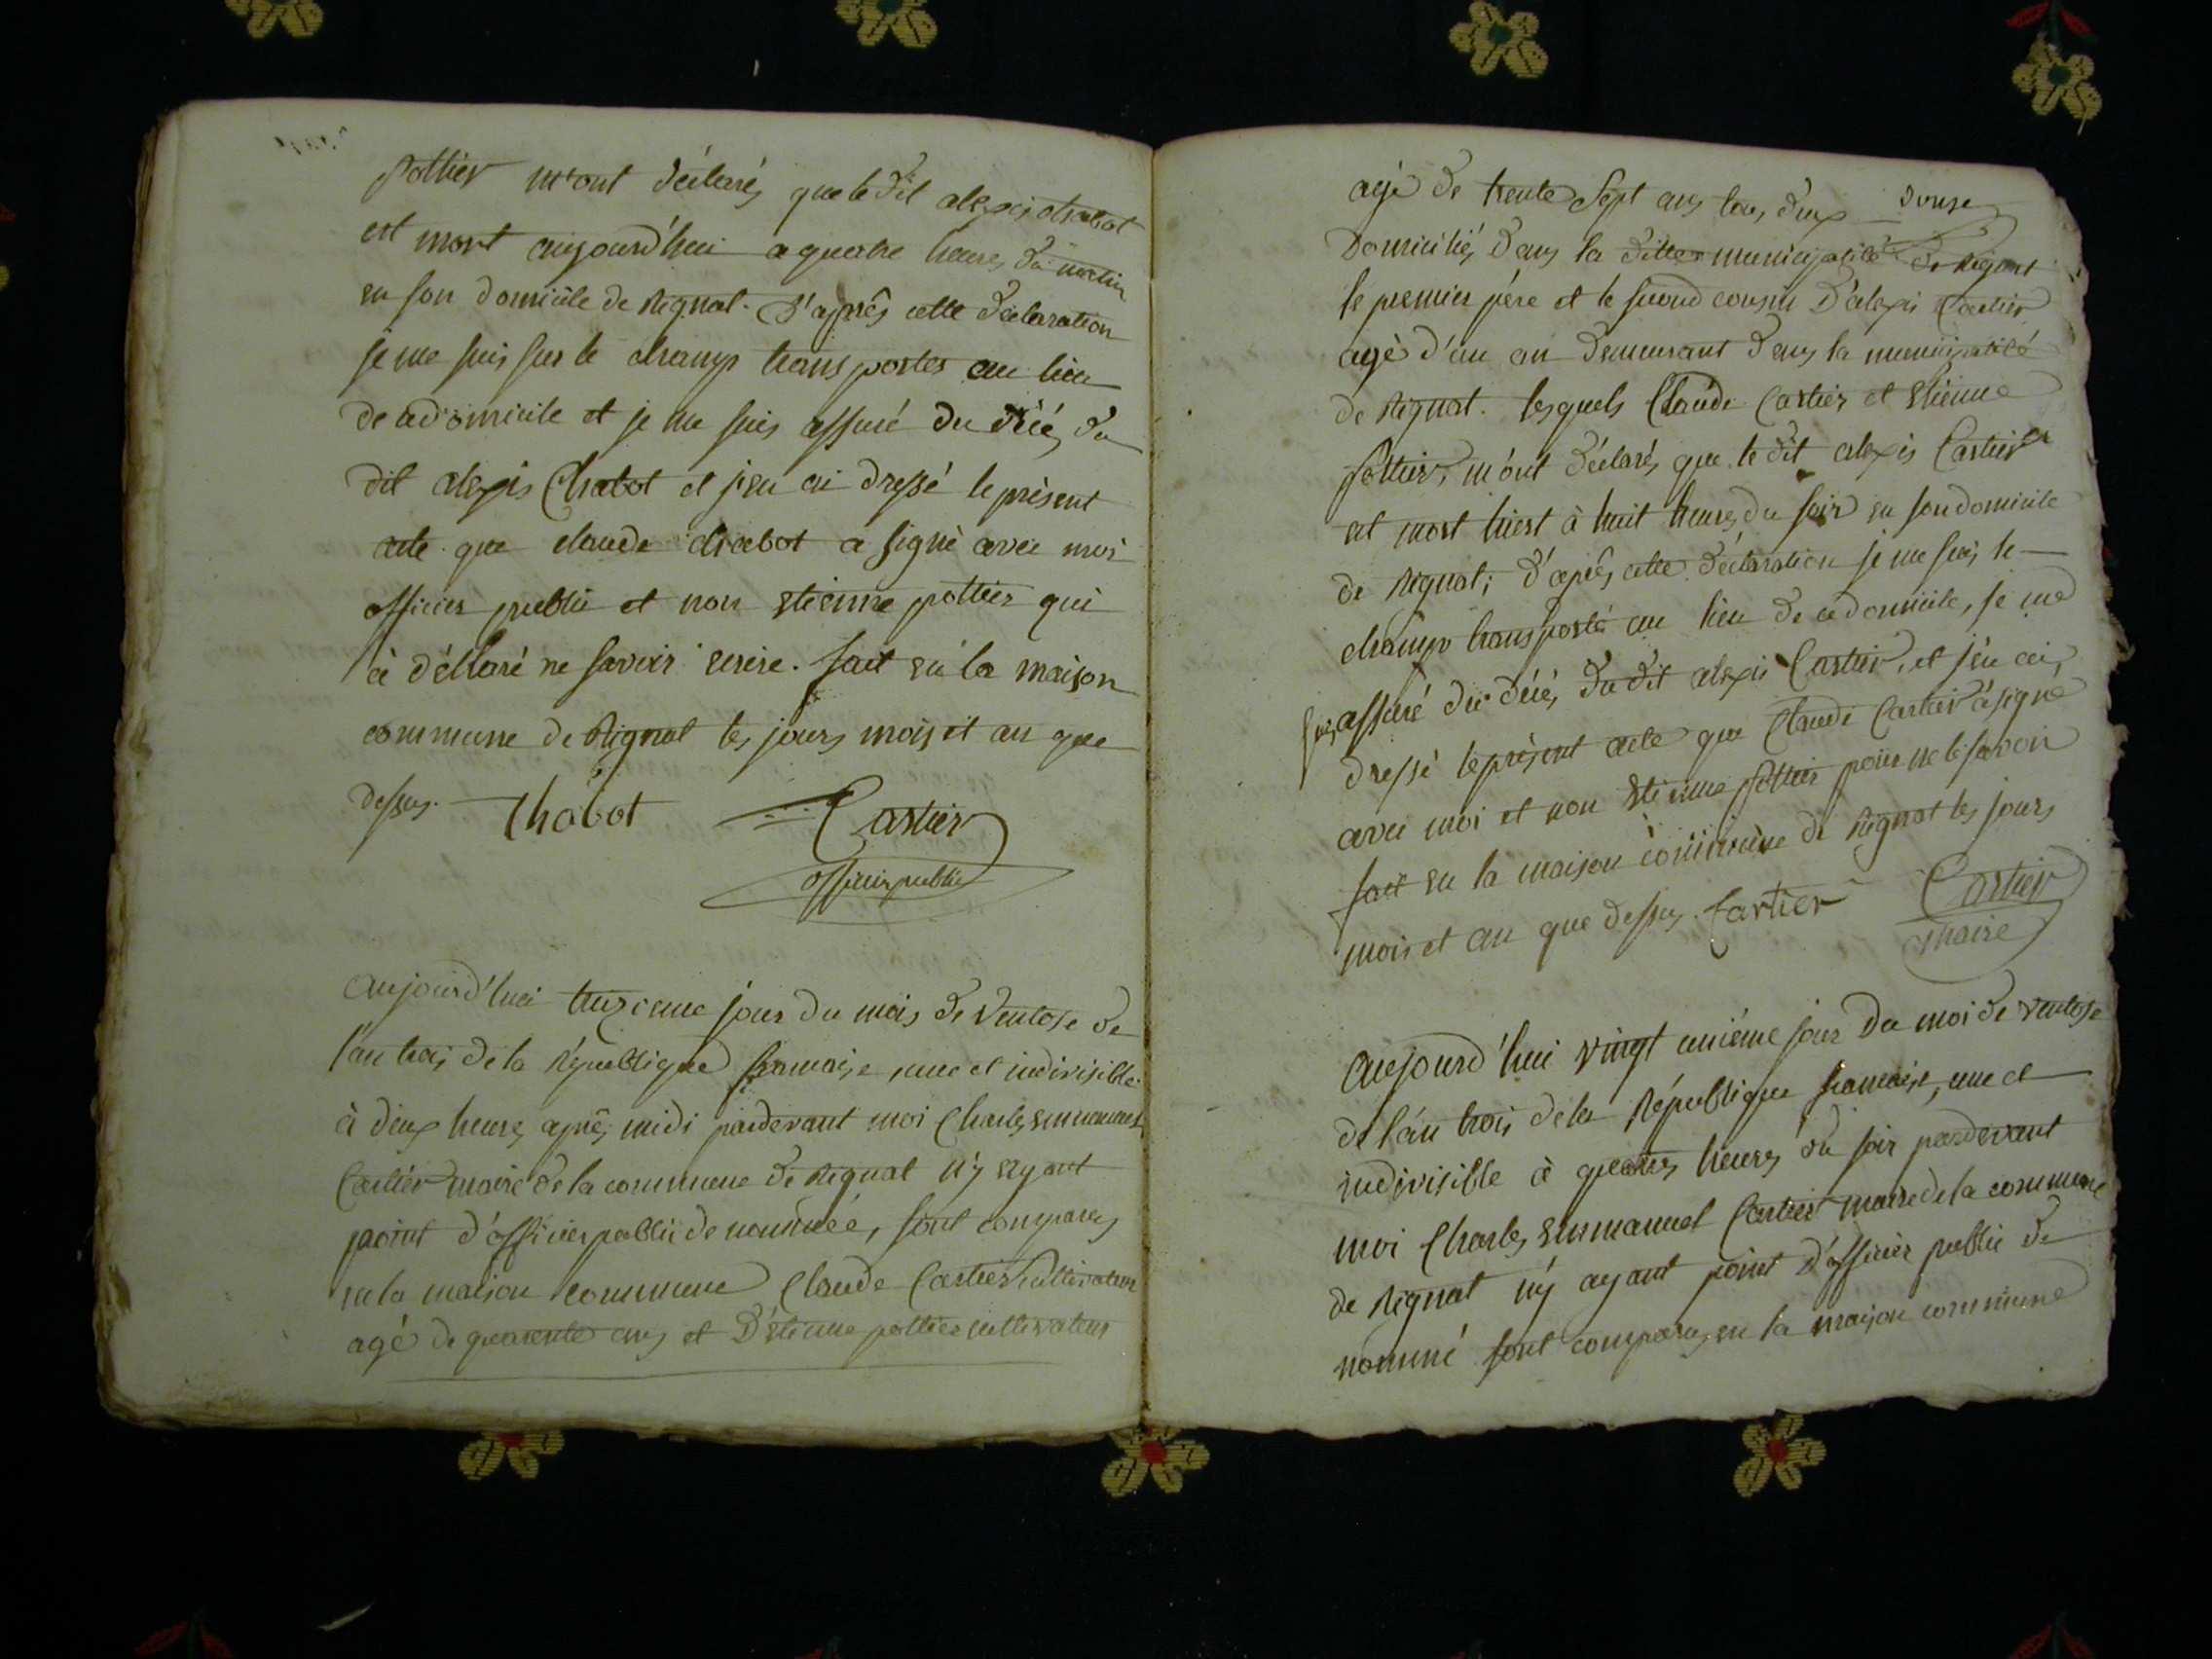 pottier m'ont déclarés que le dit alexis chabot
est mort aujourd'hui a quatre heures du matin
en son domicile de Rignat. D'après cette déclaration
je me suis sur le champ transportés au lieu
de ce domicile et je me suis assuré du décés du
dit alexis Chabot et j'en ai dressé le présent
acte que claude chabot a signé avec moi
officier public et non etienne pottier qui
à déclaré ne savoir ecrire. fait en la maison
commune de Rignat les jours mois et an que
dessus. Chabot Cartier
officier public
aujourd'hui treizieme jour du mois de Ventose de
l'an trois de la République francaise, une et indivisible
à deux heures après midi pardevant moi Charles emmanuel
Cartier maire de la commune de Rignat n'y ayant
point d'officier public de nommée, sont comparus
en la maison commune Claude Cartier cultivateur
agé de quarente ans et D'étienne pottier cultivateur
douze
agé de trente sept ans tous deux
Domiciliés dans la ditte municipalité de Rignat
le premier père et le second cousin D'alexis Cartier
agé d'un an demeurant dans la municipalité
de Rignat. lesquels Claude Cartier et etienne
pottier, m'ont déclarés que le dit alexis Cartier
est mort hiert à huit heures du soir en son domicile
de Rignat; d'après cette déclaration je me suis le
champ transporté au lieu de ce domicile, je me
suis assuré du décés du dit alexis Cartier, et j'en ai
dressé le présent acte que Claude Cartier à signé
avec moi et non etienne pottier pour ne le savoir
fait en la maison commune de Rignat les jours
mois et an que dessus. Cartier Cartier
maire
Aujourd'hui vingt unième jour du moi de ventose
de l'an trois de la République francaise, une et
indivisible à quatres heures du soir pardevant
moi Charles emmanuel Cartier maire de la commune
de Rignat n'y ayant point d'officier public de
nommé sont comparus en la maison commune